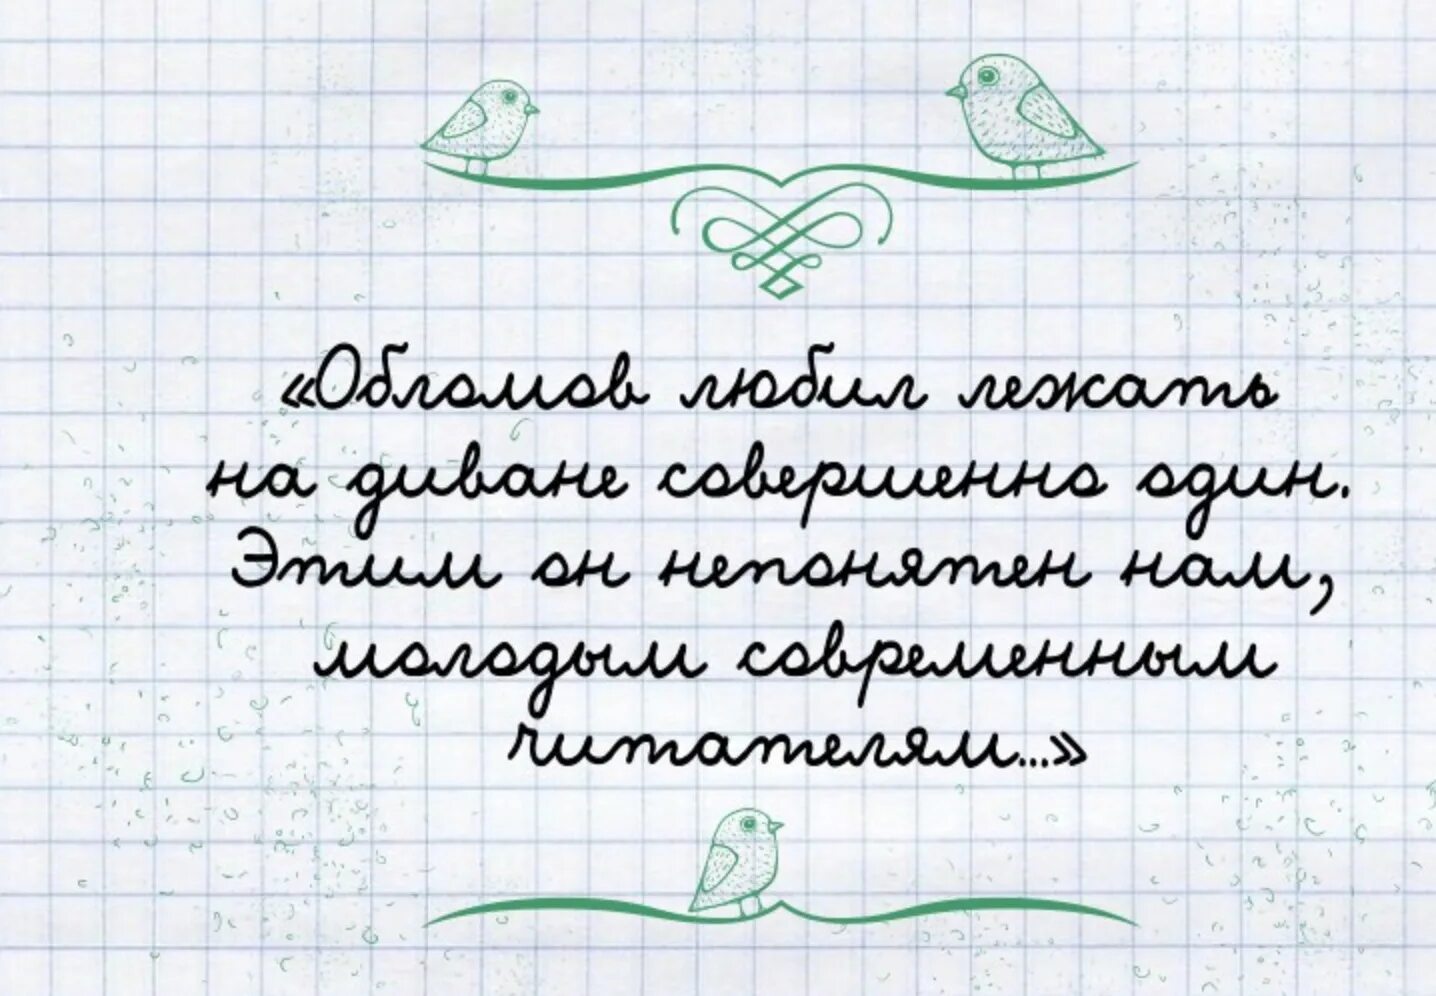 «Обломов любил лежать
на диване совершенно один.
Этим он непонятен нам,
молодым современным
читателям...»